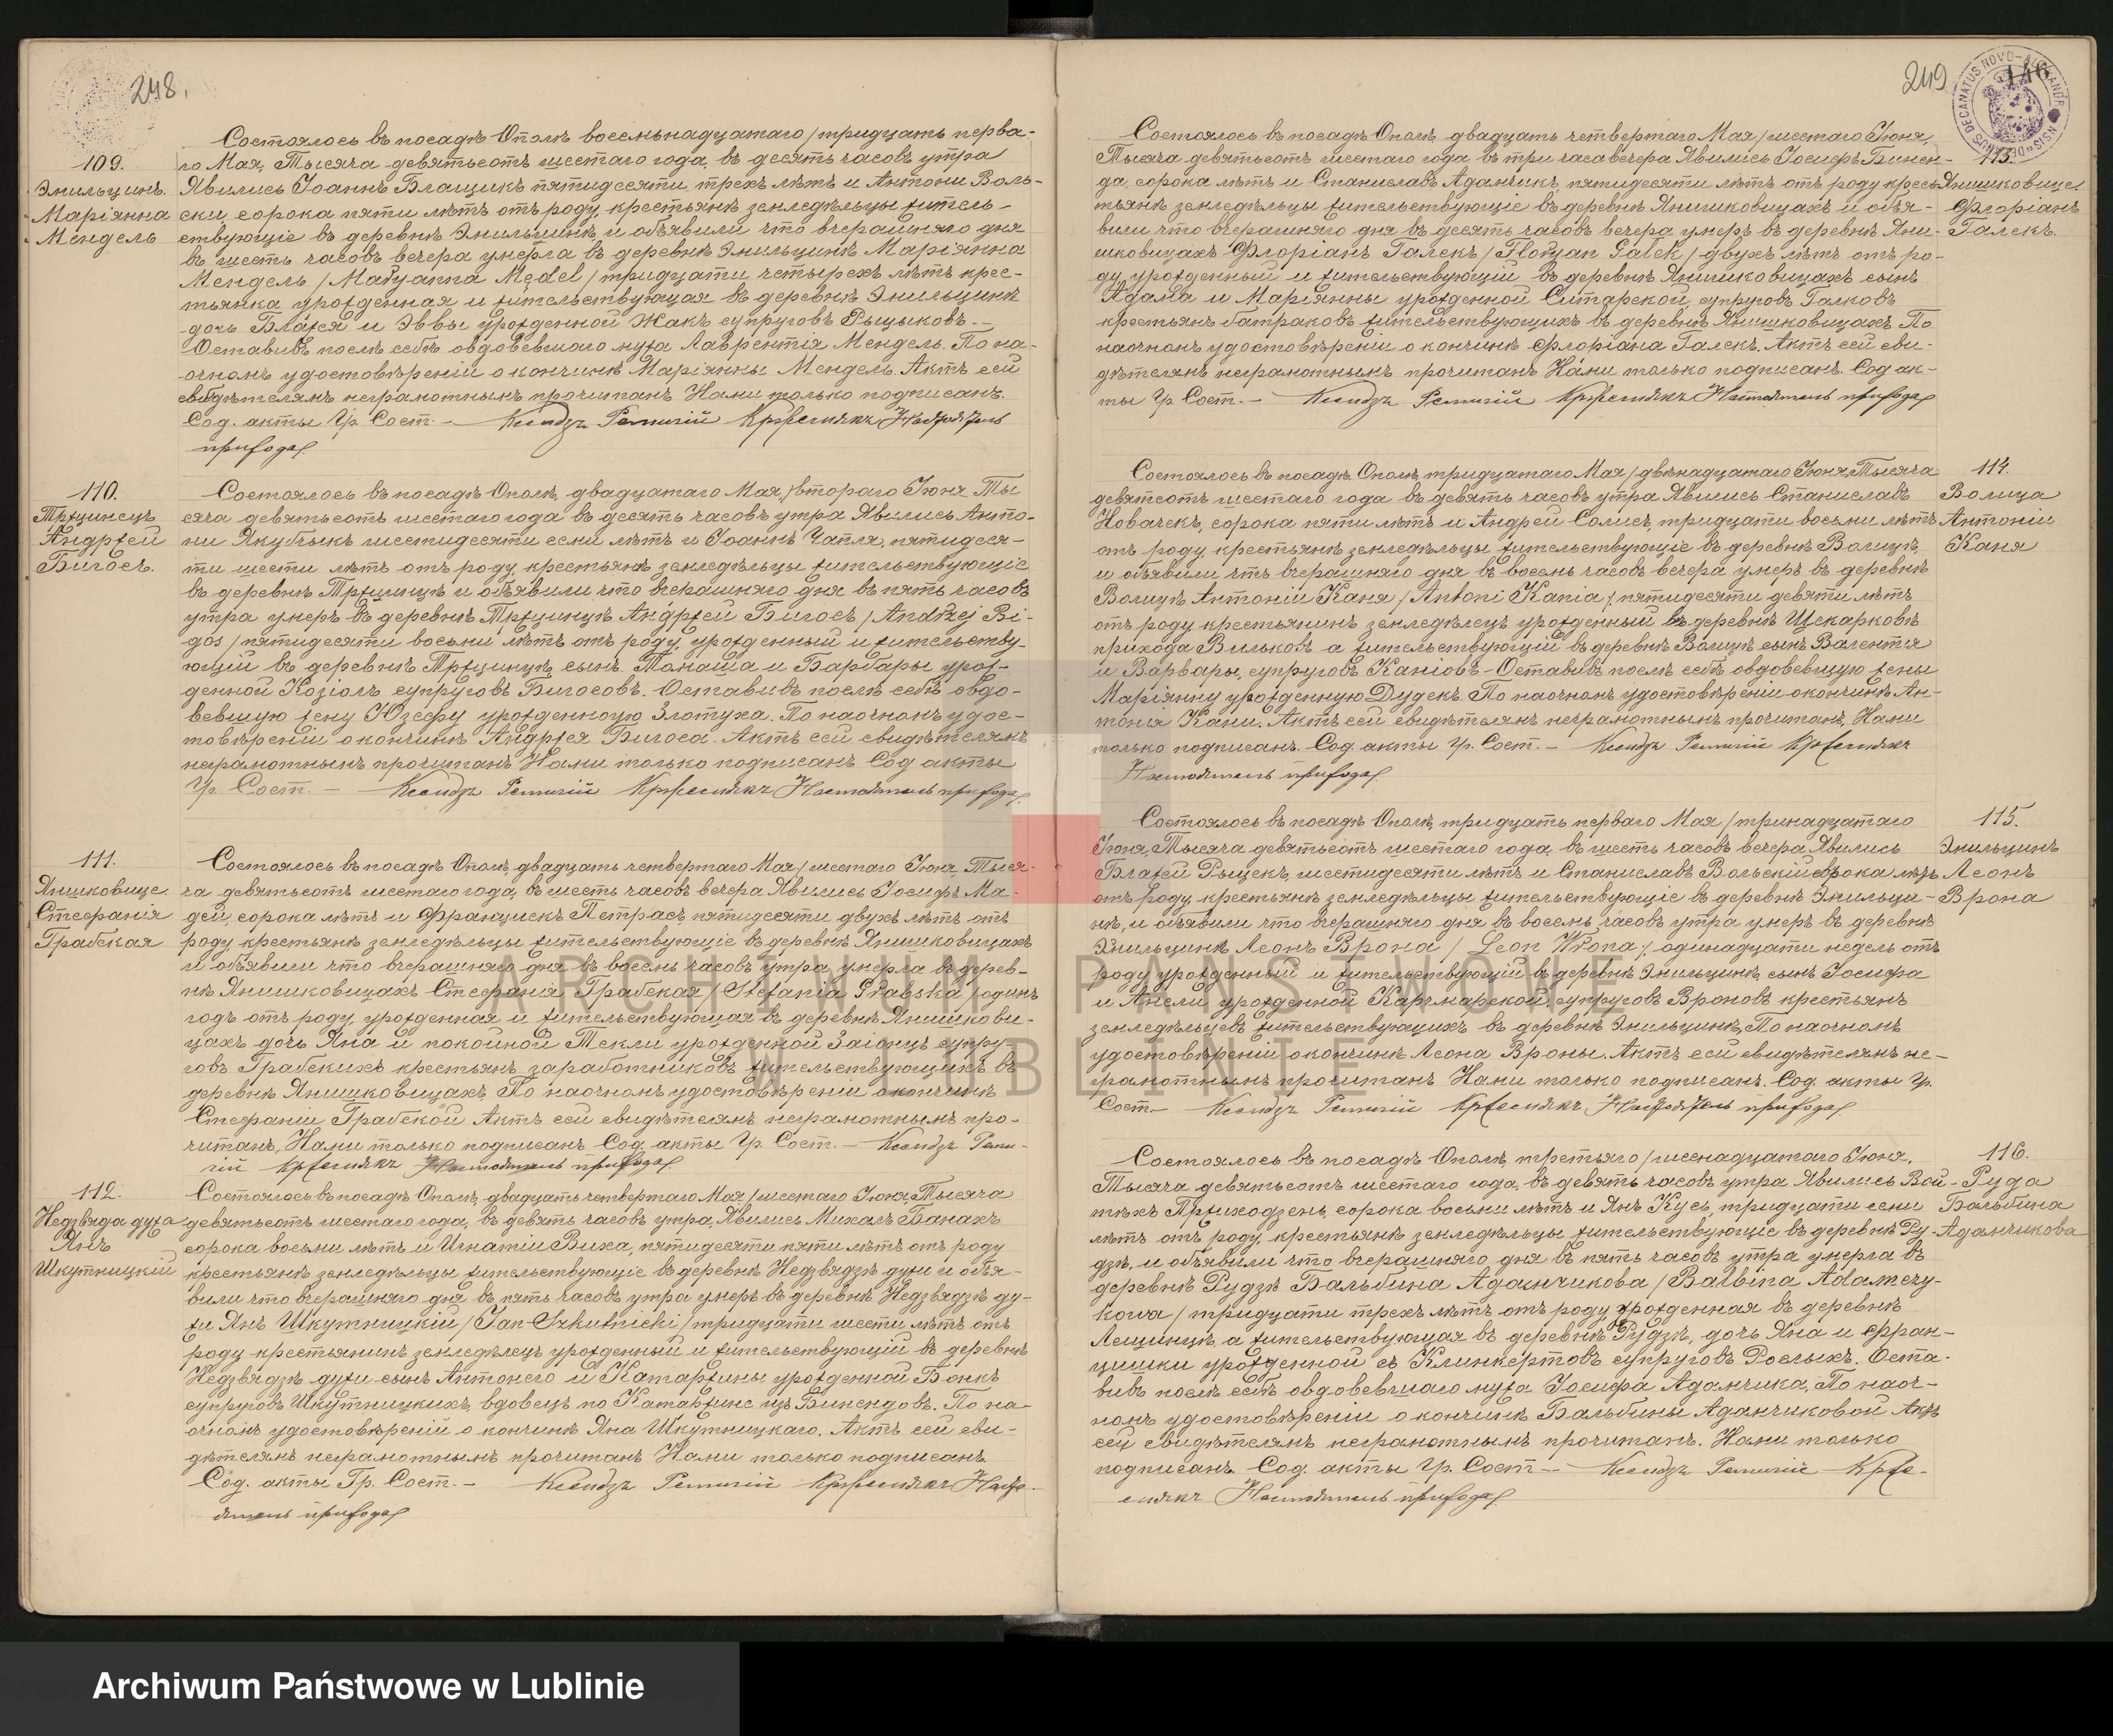 248.
109.
Эмильцинъ
Маріянна
Мендель
Состоялось въ посадѣ Ополѣ восемьнадцатаго / тридцать перва-
го Мая, Тысяча девятьсотъ шестаго года, въ десять часовъ утра
Явились Іоаннъ Блащикъ пятидесяти трехъ лѣтъ и Антони Воль-
ски, сорока пяти лѣтъ отъ роду, крестьяне земледѣльцы житель-
ствующіе въ деревнѣ Эмильцинѣ и объявили что вчерашняго дня
въ шесть часовъ вечера умерла въ деревнѣ Эмильцинѣ Маріянна
Мендель / Maryanna Mędel / тридцати четырехъ лѣтъ крес-
тьянка урожденная и жительствующая въ деревнѣ Эмильцинѣ
дочь Блажея и Эввы урожденной Жакъ супруговъ Рыцыковъ.-
Оставивъ послѣ себѣ овдовевшаго мужа Лаврентія Мендель. По на-
очномъ удостовѣреніи о кончинѣ Маріянны Мендель Актъ сей
свидѣтелямъ неграмотнымъ прочитанъ Нами только подписанъ.
Сод. акты Гр. Сост. - Ксендзъ Ремигій Крженснякъ Настоятель
прихода
110.
Тржцинецъ
Андржей
Бигосъ.
Состоялось въ посадѣ Ополѣ, двадцатаго Мая, / втораго Іюня Ты
сяча девятьсотъ шестаго года въ десять часовъ утра Явились Анто-
ни Якубчыкъ шестидесяти семи лѣтъ и Іоаннъ Чапля, пятидеся-
ти шести лѣтъ отъ роду, крестьяне земледѣльцы жительствующіе
въ деревнѣ Тржцинцѣ и объявили что вчерашняго дня въ пять часовъ
утра умеръ въ деревнѣ Тржцинцѣ Андржей Бигосъ / Andrzej Bi-
gos / пятидесяти восьми лѣтъ отъ роду, урожденный и жительству-
ющій въ деревнѣ Тржцинцѣ, сынъ Томаша и Барбары урож-
денной Козіолъ супруговъ Бигосовъ. Оставивъ послѣ себѣ овдо-
вевшую жену Юзефу урожденную Злотуха. По наочномъ удос-
товѣреніи о кончинѣ Андржея Бигоса. Актъ сей свидѣтелямъ
неграмотнымъ прочитанъ Нами только подписанъ Сод акты
Гр. Сост. - Ксендзъ Ремигій Крженснякъ Настоятель прихода
111.
Янишковице
Стефанія
Грабская
Состоялось въ посадѣ Ополѣ, двадцать четвертаго Мая, / шестаго Іюня, Тыся-
ча девятьсотъ шестаго года, въ шесть часовъ вечера Явились Іосифъ Ма-
дей, сорока лѣтъ и Францискъ Петрасъ, пятидесяти двухъ лѣтъ отъ
роду крестьяне земледѣльцы жительствующіе въ деревнѣ Янишковицахъ
и объявили что вчерашняго дня въ восемь часовъ утра умерла въ дерев-
нѣ Янишковицахъ Стефанія Грабская / Stefania Grabska / одинъ
годъ отъ роду, урожденная и жительствующая въ деревнѣ Янишкови-
цахъ дочь Яна и покойной Текли урожденной Заіонцъ супру-
говъ Грабскихъ крестьянъ заработниковъ жительствующихъ въ
деревнѣ Янишковицахъ, По наочномъ удостовѣреніи о кончинѣ
Стефаніи Грабской Актъ сей свидѣтелямъ неграмотнымъ про-
читанъ, Нами только подписанъ Сод. акты Гр. Сост. - Ксендзъ Реми-
гій Крженснякъ Настоятель прихода
112.
Недзвяда дужа
Янъ
Шкутницкій
Состоялось въ посадѣ Ополѣ, двадцать четвертаго Мая / шестаго Іюня, Тысяча
девятьсотъ шестаго года, въ девять часовъ утра, Явились Михалъ Банахъ
сорока восьми лѣтъ и Игнатій Виха, пятидесяти пяти лѣтъ отъ роду
крестьяне земледѣльцы жительствующіе въ деревнѣ Недзвядзѣ дужи и объя-
вили что вчерашняго дня въ пять часовъ утра умеръ въ деревнѣ Недзвядзѣ ду-
жи Янъ Шкутницкій / Jan Szkutnicki / тридцати шести лѣтъ отъ
роду крестьянинъ земледѣлецъ урожденный и жительствующій въ деревнѣ
Недзвядзѣ дужи сынъ Антонего и Катаржины урожденной Бонкъ
супруговъ Шкутницкихъ, вдовецъ по Катаржинѣ изъ Бинендовъ. По на-
очномъ удостовѣреній о кончинѣ Яна Шкутницкаго. Актъ сей сви-
дѣтелямъ неграмотнымъ прочитанъ Нами только подписанъ
Сод. акты Гр. Сост. - Ксендзъ Ремигій Крженснякъ Насто-
ятель прихода
249
146
DECANATUS NOVO-ALEXANDR
113.
Янишковице
Флоріанъ
Галекъ.
Состоялось въ посадѣ Ополѣ, двадцать четвертаго Мая / шестаго Іюня,
Тысяча девятьсотъ шестаго года въ три часа вечера Явились Іосифъ Бинен-
да, сорока лѣтъ и Станиславъ Адамчикъ, пятидесяти лѣтъ отъ роду крес-
тьяне земледѣльцы жительствующіе въ деревнѣ Янишковицахъ и объя-
вили что вчерашняго дня въ десять часовъ вечера умеръ въ деревнѣ Яни-
шковицахъ Флоріанъ Галекъ / Floryan Gałek / двухъ лѣтъ отъ ро-
ду, урожденный и жительствующій въ деревнѣ Янишковицахъ сынъ
Адама и Маріянны урожденной Ситарской, супруговъ Галковъ
крестьянъ батраковъ жительствующихъ въ деревнѣ Янишковицахъ По
наочномъ удостовѣреніи о кончинѣ Флоріана Галекъ. Актъ сей сви-
дѣтелямъ неграмотнымъ прочитанъ Нами только подписанъ. Сод ак-
ты Гр. Сост. - Ксендзъ Ремигій Крженснякъ Настоятель прихода
114.
Волица
Антоніи
Каня
Состоялось въ посадѣ Ополѣ, тридцатаго Мая / двѣнадцатаго Іюня, Тысяча
девятсотъ шестаго года въ девять часовъ утра Явились Станиславъ
Новачекъ, сорока пяти лѣтъ и Андрей Солисъ, тридцати восьми лѣтъ
отъ роду крестьяне земледѣльцы жительствующіе въ деревнѣ Волицѣ,
и объявили что вчерашняго дня въ восемь часовъ вечера умеръ въ деревнѣ
Волицѣ Антоніи Каня / Antoni Kania / пятидесяти девяти лѣтъ
отъ роду крестьянинъ земледѣлецъ урожденный въ деревнѣ Щекарковѣ
прихода Вильковъ а жительствующій въ деревнѣ Волицѣ сынъ Валентія
и Варвары, супруговъ Каніовъ - Оставивъ послѣ себѣ овдовевщую жени
Маріянну урожденную Дудекъ. По наочномъ удостовѣреніи о кончинѣ Ан-
тонія Кани. Актъ сей свидѣтелямъ неграмотнымъ прочитанъ, Нами
только подписанъ. Сод. акты Гр. Сост. - Ксендзъ Ремигій Крженснякъ
Настоятель прихода
115.
Эмильцинъ
Леонъ
Врона
Состоялось въ посадѣ Ополѣ, тридцать перваго Мая / тринадцатаго
Іюня, Тысяча девятьсотъ шестаго года, въ шесть часовъ вечера, Явились
Блажей Рыцекъ, шестидесяти лѣтъ и Станиславъ Вольскій сорока лѣтъ
отъ роду крестьяне земледѣльцы жительствующіе въ деревнѣ Эмильци-
нѣ, и объявили что вчерашняго дня въ восемь часовъ утра умеръ въ деревнѣ
Эмильцинѣ Леонъ Врона / Leon Wrona /, одинадцати недель отъ
роду урожденный и жительствующій въ деревнѣ Эмильцинѣ, сынъ Іосифа
и Анели урожденной Карчмарской, супруговъ Вроновъ крестьянъ
земледѣльцевъ жительствующихъ въ деревнѣ Эмильцинѣ, По наочномъ
удостовѣреніи о кончинѣ Леона Вроны. Актъ сей свидѣтелямъ не-
грамотнымъ прочитанъ Нами только подписанъ. Сод. акты Гр.
Сост. - Ксендзъ Ремигій Крженснякъ Настоятель прихода
116.
Руда
Бальбина
Адамчикова
Состоялось въ посадѣ Ополѣ, третьяго / шеснадцатаго Іюня,
Тысяча девятьсотъ шестаго года, въ девять часовъ утра Явились Вой-
тѣхъ Пржиходзень, сорока восьми лѣтъ и Янъ Кусь, тридцати семи
лѣтъ отъ роду, крестьяне земледѣльцы жительствующіе въ деревнѣ Ру-
дзѣ, и объявили что вчерашняго дня въ пять часовъ утра умерла въ
деревнѣ Рудзѣ Бальбина Адамчикова / Balbina Adamczy-
kowa / тридцати трехъ лѣтъ отъ роду, урожденная въ деревнѣ
Лещинцѣ, а жительствующая въ деревнѣ Рудзѣ, дочь Яна и Фран-
цишки урожденной съ Клинкертовъ супруговъ Рослыхъ. Оста-
вивъ послѣ себѣ овдовевшаго мужа Іосифа Адамчика, По наоч-
номъ удостовѣреніи о кончинѣ Бальбины Адамчиковой Актъ
сей свидѣтелямъ неграмотнымъ прочитанъ. Нами только
подписанъ. Сод. акты Гр. Сост - Ксендзъ Ремигій Крже-
снякъ Настоятель прихода
ARCHIWUM PAŃSTWOWE
W LUBLINIE
Archiwum Państwowe w Lublinie